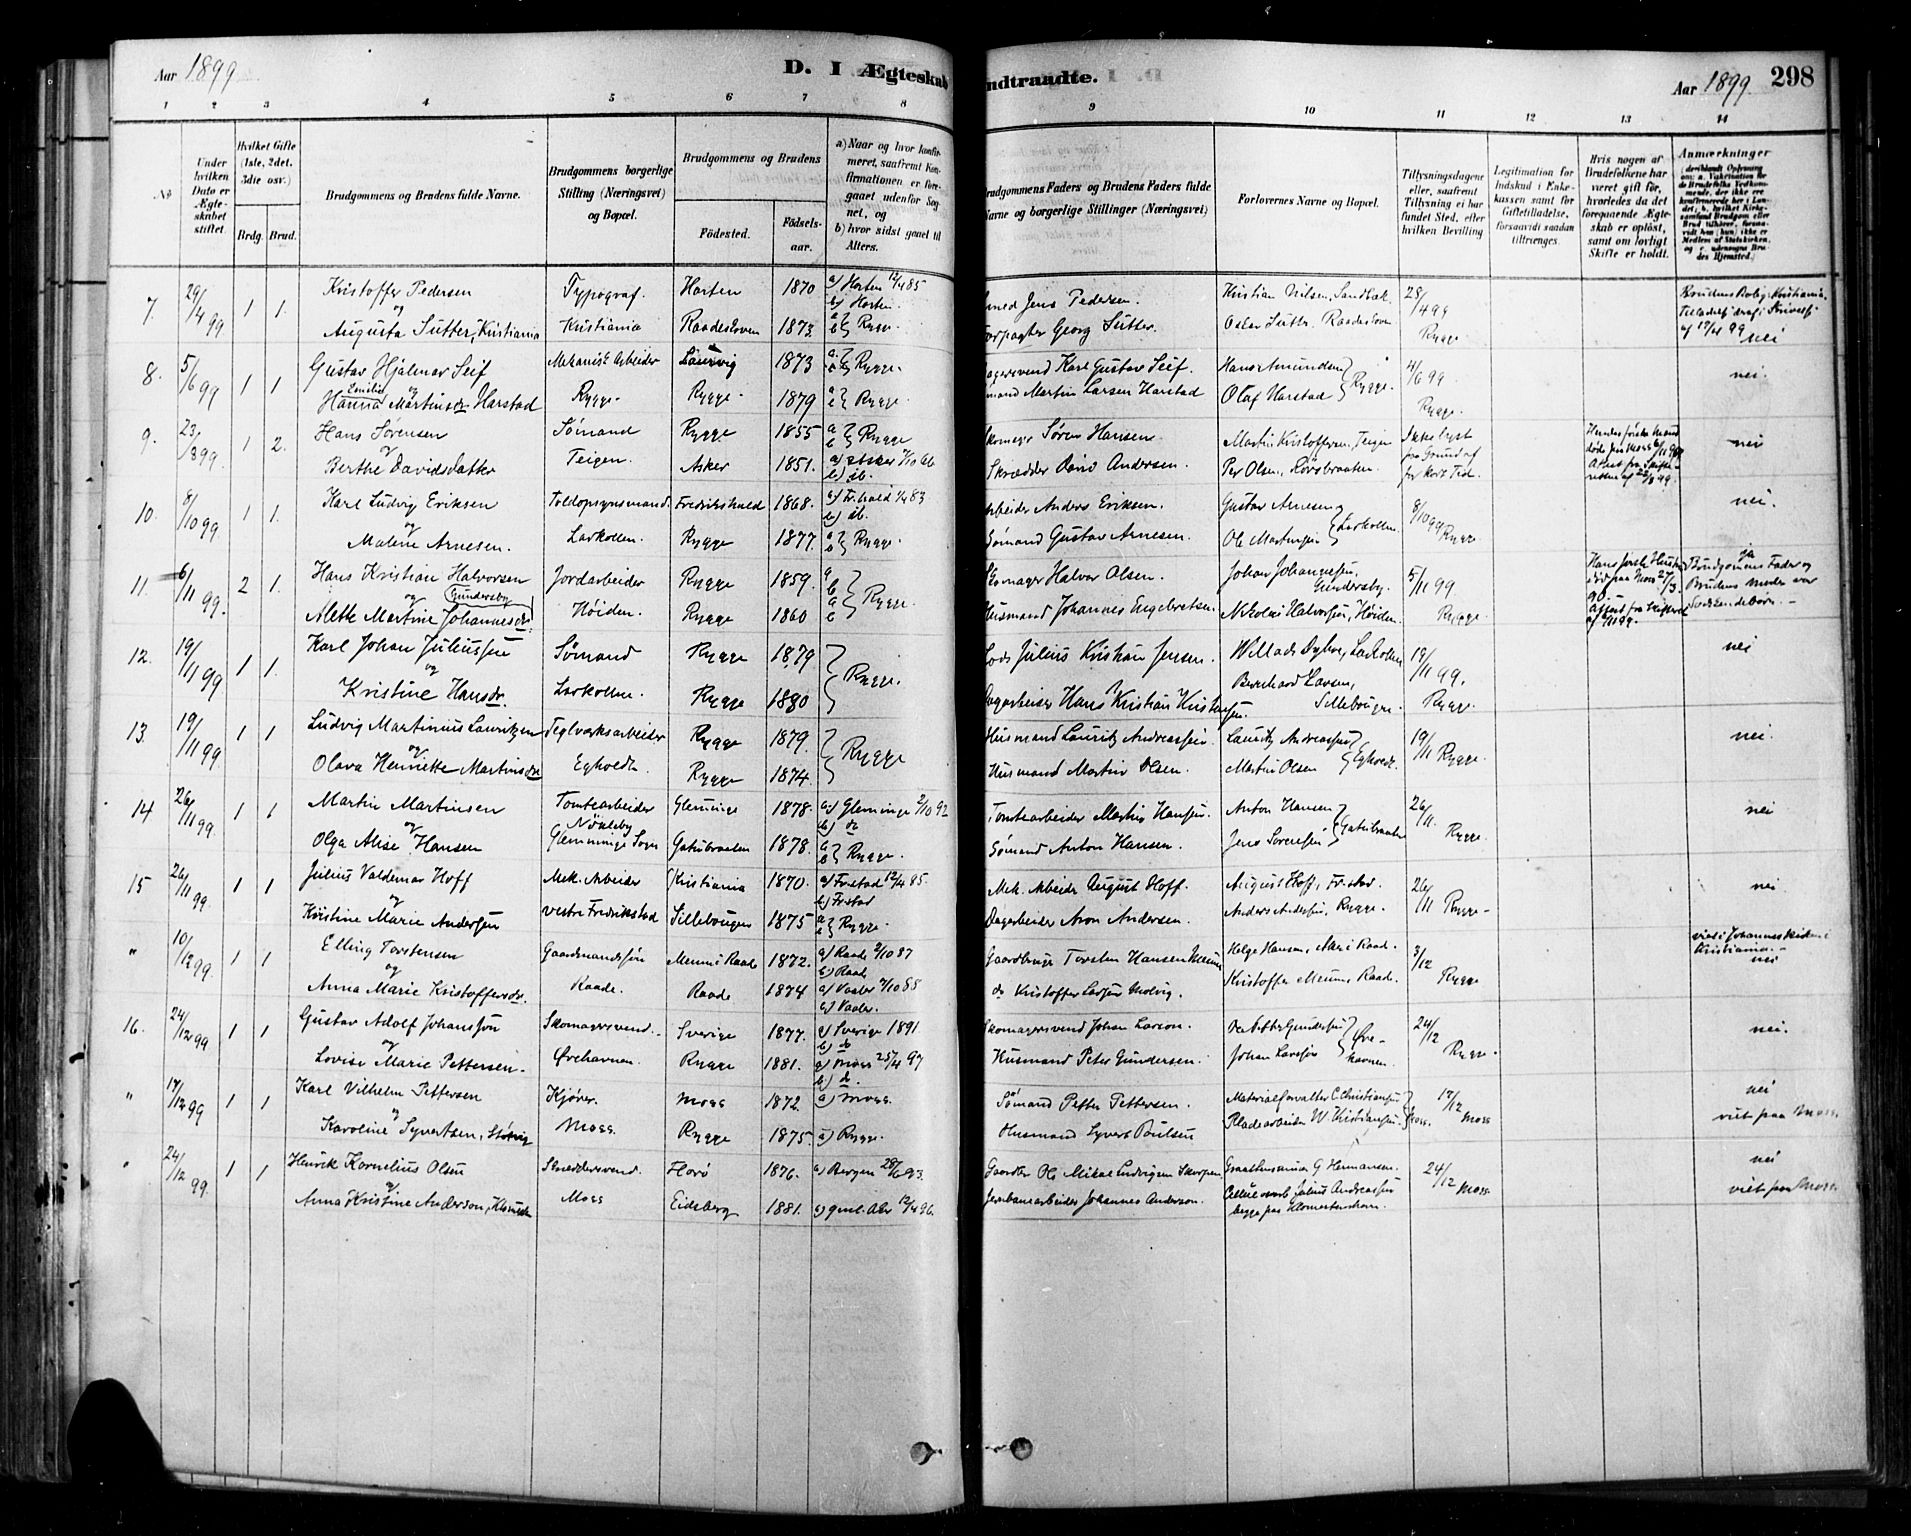 Aar 1899
D. I Ægteskab
ndtraadte.
Aar 1899.
298
1 2 3 4 5 6 7 8
9 10 11 12 13 14
No
Under hvilken Dato er Ægteskabet stiftet.
Hvilket Gifte (1ste, 2det, 3die osv.)
Brdg. Brud.
Brudgommens og Brudens fulde Navne.
Brudgommens borgerlige Stilling (Næringsvei) og Bopæl.
Brudgommens og Brudens
Fødested.
Fødselsaar.
a) Naar og hvor konfirmeret, saafremt Konfirmationen er foregaaet udenfor Sognet, og
b) hvor sidst gaaet til Alters.
rudgommens Faders og Brudens Faders fulde Navne og borgerlige Stillinger (Næringsvei)
Forlovernes Navne og Bopæl.
Tillysningsdagene eller, saafremt Tillysning ei har fundet Sted, efter hvilken Bevilling
Legitimation for Indskud i Enkekassen samt for Giftetilladelse, forsaavidt saadan tiltrænges.
Hvis nogen af Brudefolkene har været gift før, hvorledes da det foregaaende Ægteskab er opløst, samt om lovligt Skifte er holdt.
Anmærkninger
7. 29/4 99 1 1. Kristoffer Pedersen Typograf. Horten 1870 a) Horten 12/4 85 Jens Pedersen. Kristian Nilsen, Sandbæk 28/4 99
og b) Horten.
Augusta Sutter, Kristiania Kristiania Raadesloven 1873. a b } Rygge. Georg Sutter. Oscar Sutter. Raadesloven Rygge nei
8. 5/6 99 1 1 Gustav Hjalmar Seif Mekanisk Arbeider Laurvig 1873 Rygge. Karl Gustav Seif. Hans Amundsen 4/6 99 nei.
Emilie og
Hanna Martinsdr Harstad Rygge. Rygge. 1879 Rygge. Martin Larsen Harstad Olaf Harstad } Rygge. Rygge.
9. 23/8 99 1 2. Hans Sørensen Sømand Rygge 1855 a b } Rygge Skomager Søren Hansen. Martin Kristoffersen, Teigen Ikke lyst nei
og paa Grund af
Berthe Davidsdatter Teigen. Asker 1851. a) Asker 7/10 66 Skrædder David Andersen. Per Olsen, for kort Tid.
10. 8/10 99 1 1. Karl Ludvig Eriksen Toldopsynsmand. Fredrikshald 1868. a) Frhald 1/4 83 Arbeider Anders Eriksen. Gustav Arnesen 8/10 99 nei.
og
Maline Arnesen. Larkollen. Rygge 1877. a b } Rygge. Sømand Gustav Arnesen. Ole Martinsen } Larkollen. Rygge.
11. 6/11 99. 2 1. Hans Kristian Halvorsen Jordarbeider Rygge 1859. a b Skomager Halvor Olsen. Johan Johannesen 5/11 99. ja
og Gundersby } Rygge Gundersby Brudgomens Fader og
Alette Martine Johannesdr. Høiden. Rygge 1860 Husmand Johannes Engebretsen Nikolai Halvorsen, Høiden. Rygge. Brudens moder var Søskendebørn. -
12. 19/11 99 1 1. Karl Johan Juliussen Sømand Rygge 1879 Lods Julius Kristian Jensen. Willads Dybro, Larkollen 19/11 99. nei
og } Rygge. Bernhard Larsen,
Kristine Hansdr. Larkollen. Rygge 1880 Dagarbeider Hans Kristian Kristensen. Sillebougen. Rygge.
13. 19/11 99 1 1 Ludvig Martinius Lauritzen Teglværksarbeider Rygge 1879. Husmand Lauritz Andreassen. Lauritz Andreassen 19/11 nei.
og } Rygge
Olava Henriette Martinsdr Egholdt. Rygge 1874. Husmand Martin Olsen. Martin Olsen } Egholdt. Rygge.
14 26/11 99. 1 1 Martin Martinsen Tomtearbeider Glemminge 1878. a) Glemminge 2/10 92 Tomtearbeider Martin Hansen. Anton Hansen 26/11. nei
og Nøkleby b) do
Olga Alise Hansen Glemminge Sogn Gatubraaten 1878. a b } Rygge. Sømand Anton Hansen. Jens Sørensen } Gatubraaten Rygge.
15 26/11 99. 1 1 Julius Valdemar Hoff Mek. Arbeider Kristiania 1870. a) Frstad 12/4 85. Mek. Arbeider August Hoff. August Hoff, Frstad. 26/11 nei
og b) Frstad
Kristine Marie Andersen vestre Fredrikstad Sillebougen 1875 a b } Rygge. Dagarbeider Aron Andersen. Anders Andersen, Rygge. Rygge.
" 10/12 99. 1 1 Elling Torstensen Gaardmandssøn Meum i Raade 1872. a) Raade 2/10 87 Gaardbruger Torsten Hansen Meum Helge Hansen, i Raade. 3/12 viet i Johannes Kirken i Kristiania. -
og b) Raade nei
Anna Marie Kristoffersdr. Raade. Raade 1874 a) Vaaler 7/10 88 do Kristoffer Larsen Molvig. Kristoffer Meum, Raade. Rygge
b) Vaaler.
16. 24/12 99 1 1 Gustav Adolf Johanssøn Skomagersvend. Sverige 1877. a) Sverige 1891 Skomagersvend Johan Larson. Gundersen 24/12 nei.
og b) do
Lovise Marie Pettersen. Ørehavnen. Rygge 1881. a) Moss 25/4 97 Husmand Peter Gundersen. Johan Larssøn } Ørehavnen Rygge.
b) do.
" 17/12 99 1 1 Karl Vilhelm Pettersen Kjører. Moss 1872. a) Moss. Sømand Petter Pettersen. Materialforvalter C. Christiansen 17/12 nei
og
Karoline Syvertsen, Moss. Rygge 1875. a) Rygge. Husmand Syvert Poulsen Pladearbeider W. Kristiansen } Moss. Moss viet paa Moss
" 24/12 99. 1 1 Henrik Kornelius Olsen Skreddersvend. Florø 1876. a) Bergen 28/6 93. Gaardbr Ole Mikal Ludvigsen G. Hermansen. 24/12 nei
og
Anna Kristine Anderson, Moss Eidsberg 1881. a) gml. Aker 12/4 96. Jernbanearbeider Johannes Anderson. Julius Andreassen Moss. viet paa Moss
begge paa